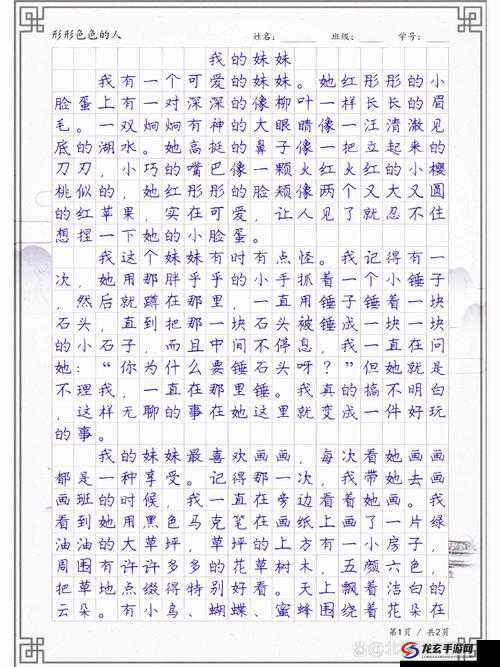 形形色色的人 姓名： 班级： 学号：
我的妹妹
我有一个可爱的妹妹。她红彤彤的小
脸蛋上有一对深深的像柳叶一样长长的眉
毛。一双炯炯有神的大眼睛像一汪清澈见
底的湖水。她高挺的鼻子像一把立起来的
刀刃，小巧的嘴巴像一颗火红火红的小樱
桃似的，她红彤彤的脸颊像两个又大又圆
的红苹果，实在可爱，让人见了就忍不住
想捏一下她的小脸蛋。
我这个妹妹有时有点怪。我记得有一
次，她用那胖乎乎的小手抓着一个小锤子
，然后就蹲在那里，一直用锤子锤着一块
石头，直到把那一块石头被锤成一块一块
的小石子，而且中间不停息，我一直在问
她：“你为什么要锤石头呀？”但她就是
不理我，一直在那里锤。我真的搞不明白
，这样无聊的事在她这里就变成一件好玩
的事。
我的妹妹最喜欢画画，每次看她画画
都是一种享受。记得那一次，我带她去画
画班的时候，我一直在旁边看着她画。我
看到她用黑色马克笔在画纸上画了一片绿
油油的大草坪，草坪的上方有一小房子，
周围有许许多多的花草树木，五颜六色，
把草地点缀得特别好看。天上飘着洁白的
云朵。有小鸟、蝴蝶、蜜蜂围绕着花朵在
第1页 / 共2页
龙玄手游网